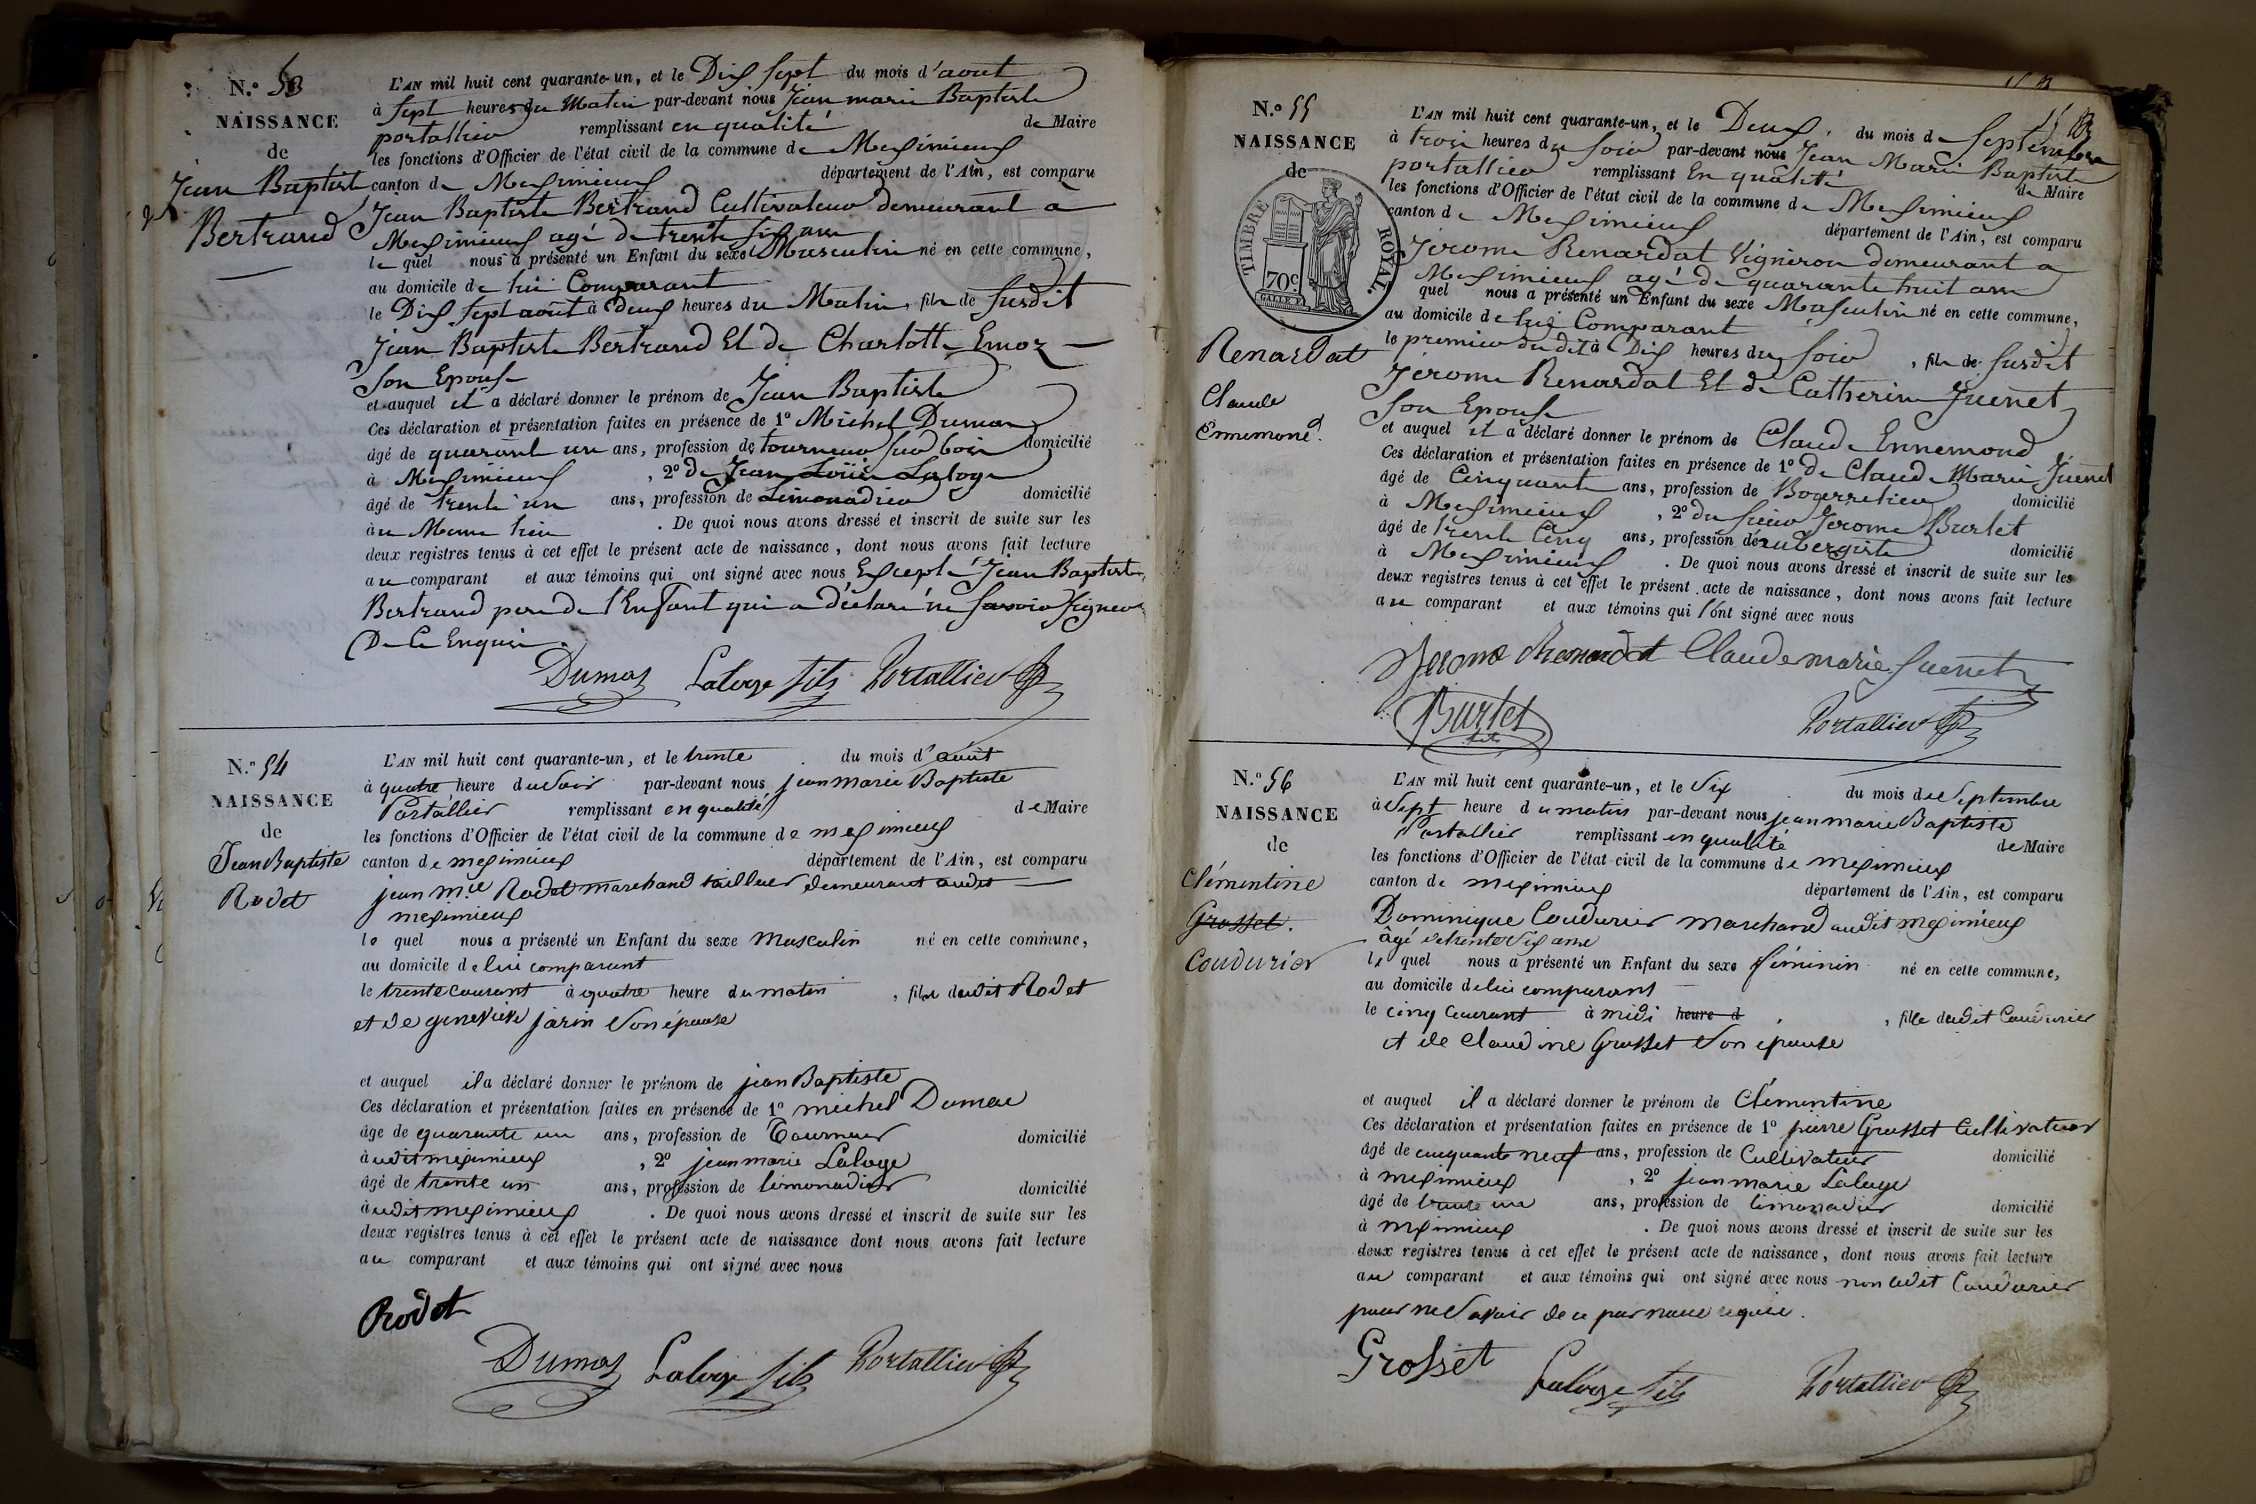 N.° 53
NAISSANCE
de
Jean Baptiste
Bertrand
L'AN mil huit cent quarante-un, et le Dix Sept du mois d'aout
à Sept heures du Matin par-devant nous Jean marie Baptiste
portallier remplissant en qualité de Maire
les fonctions d'Officier de l'état civil de la commune de Meximieux
canton de Meximieux département de l'Ain, est comparu
Jean Baptiste Bertrand Cultivateur demeurant a
Meximieux agé de trente six ans
le quel nous a présenté un Enfant du sexe Masculin né en cette commune,
au domicile de lui Comparant
le Dix Sept aout à deux heures du Matin, fils de Susdit
Jean Baptiste Bertrand Et de Charlotte Emoz
Son Epouse
et auquel il a déclaré donner le prénom de Jean Baptiste
Ces déclaration et présentation faites en présence de 1° Michel Dumas
âgé de quarant un ans, profession de tourneur Sur bois domicilié
à Meximieux , 2° de Jean Louis Laloge
âgé de trente un ans, profession de Limonadier domicilié
au Meme lieu . De quoi nous avons dressé et inscrit de suite sur les
deux registres tenus à cet effet le présent acte de naissance, dont nous avons fait lecture
au comparant et aux témoins qui ont signé avec nous Excepté Jean Baptiste
Bertrand pere de l'Enfant qui a déclaré ne Savoir Signer
De Ce Enquis.
Dumas Laloge fils Portallier
N.° 54
NAISSANCE
de
Jean Baptiste
Rodet
L'AN mil huit cent quarante-un, et le trente du mois d'août
à quatre heure du soir par-devant nous jean marie Baptiste
Portallier remplissant en qualité de Maire
les fonctions d'Officier de l'état civil de la commune de meximieux
canton de meximieux département de l'Ain, est comparu
jean m.ie Rodet marchand tailleur demeurant audit
meximieux
le quel nous a présenté un Enfant du sexe masculin né en cette commune,
au domicile de lui comparant
le trente courant à quatre heure du matin , fils dudit Rodet
et de geneviève jarin son épouse
et auquel il a déclaré donner le prénom de jean Baptiste
Ces déclaration et présentation faites en présence de 1° michel Dumas
âge de quarante un ans, profession de Tourneur domicilié
audit meximieux , 2° jean marie Laloge
âgé de trente un ans, profession de limonadier domicilié
audit meximieux . De quoi nous avons dressé et inscrit de suite sur les
deux registres tenus à cet effet le présent acte de naissance dont nous avons fait lecture
au comparant et aux témoins qui ont signé avec nous
Rodet
Dumas Laloge fils Portallier
N.° 55
NAISSANCE
de
TIMBRE ROYAL.
70c
Renardat
Claude
Ennemond.
L'AN mil huit cent quarante-un, et le Deux du mois de Septembre
à trois heures du Soir par-devant nous Jean Marie Baptiste
portallier remplissant En qualité de Maire
les fonctions d'Officier de l'état civil de la commune de Meximieux
canton de Meximieux département de l'Ain, est comparu
Jerome Renardat Vigneron demeurant a
Meximieux agé de quarante huit ans
quel nous a présenté un Enfant du sexe Masculin né en cette commune,
au domicile de lui Comparant
le premier du dit à Dix heures du Soir , fils de Susdit
Jerome Renardat Et de Catherine Juenet
Son Epouse
et auquel il a déclaré donner le prénom de Claude Ennemond
Ces déclaration et présentation faites en présence de 1° de Claude Marie Juenet
âgé de Cinquante ans, profession de Bourrelier domicilié
à Meximieux , 2° du Sieur Jerome Burlet
âgé de trente Cinq ans, profession de aubergiste domicilié
à Meximieux . De quoi nous avons dressé et inscrit de suite sur les
deux registres tenus à cet effet le présent acte de naissance, dont nous avons fait lecture
au comparant et aux témoins qui ont signé avec nous
Jerome Renardat Claude marie Juenet
Burlet Portallier
N.° 56
NAISSANCE
de
Clémentine
Grosset.
Coudurier
L'AN mil huit cent quarante-un, et le Six du mois de Septembre
à Sept heure du matin par-devant nous jean marie Baptiste
Portallier remplissant en qualité de Maire
les fonctions d'Officier de l'état civil de la commune de meximieux
canton de meximieux département de l'Ain, est comparu
Dominique Coudurier marchand audit meximieux
âgé de trente six ans
le quel nous a présenté un Enfant du sexe féminin né en cette commune,
au domicile de lui comparant
le cinq courant à midi heure d , fille dudit Coudurier
et de Claudine Grosset son épouse
et auquel il a déclaré donner le prénom de Clémentine
Ces déclaration et présentation faites en présence de 1° pierre Grosset Cultivateur
âgé de cinquante neuf ans, profession de Cultivateur domicilié
à meximieux , 2° jean marie Laloge
âgé de trente un ans, profession de limonadier domicilié
à meximieux . De quoi nous avons dressé et inscrit de suite sur les
deux registres tenus à cet effet le présent acte de naissance, dont nous avons fait lecture
au comparant et aux témoins qui ont signé avec nous non ledit Coudurier
pour ne savoir de ce par nous requis.
Grosset Laloge fils Portallier